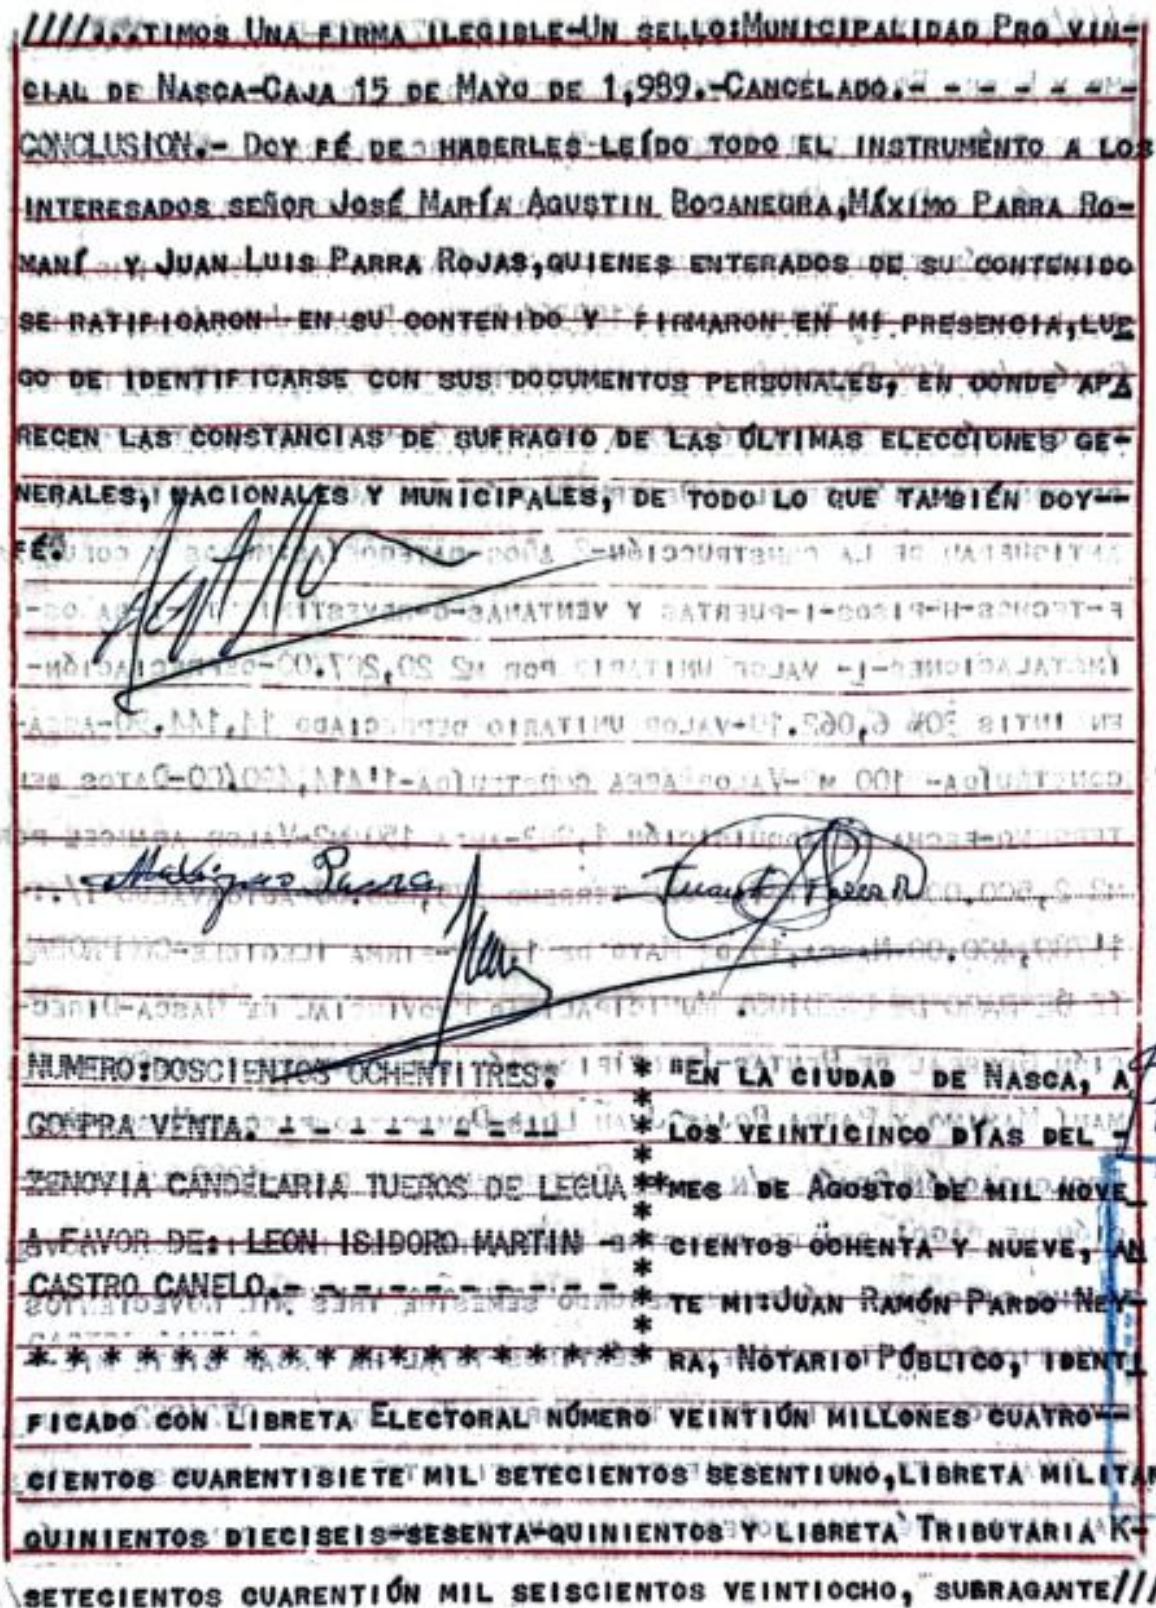 ////...TIMOS UNA FIRMA ILEGIBLE-UN SELLO:MUNICIPALIDAD PRO VIN-
CIAL DE NASCA-CAJA 15 DE MAYO DE 1,989.-CANCELADO.- - - - - - -
CONCLUSION.- DOY FÉ DE HABERLES LEÍDO TODO EL INSTRUMENTO A LOS
INTERESADOS SEÑOR JOSÉ MARÍA AGUSTIN BOCANEGRA,MÁXIMO PARRA RO-
MANÍ Y JUAN LUIS PARRA ROJAS,QUIENES ENTERADOS DE SU CONTENIDO
SE RATIFICARON EN SU CONTENIDO Y FIRMARON EN MI PRESENCIA,LUE
GO DE IDENTIFICARSE CON SUS DOCUMENTOS PERSONALES, EN DONDE APA
RECEN LAS CONSTANCIAS DE SUFRAGIO DE LAS ÚLTIMAS ELECCIONES GE-
NERALES, NACIONALES Y MUNICIPALES, DE TODO LO QUE TAMBIÉN DOY--
FÉ.
Maximo Parra
Juan L Parra R
NUMERO:DOSCIENTOS OCHENTITRES.
COMPRA VENTA. - - - - - - - -
ZENOVIA CANDELARIA TUEROS DE LEGUA
A FAVOR DE: LEON ISIDORO MARTIN -
CASTRO CANELO.- - - - - - - - - -
* * * * * * * * * * * * * * * * * *
"EN LA CIUDAD DE NASCA, A
LOS VEINTICINCO DÍAS DEL -
MES DE AGOSTO DE MIL NOVE
CIENTOS OCHENTA Y NUEVE, AN
TE MI:JUAN RAMÓN PARDO NEY-
RA, NOTARIO PÚBLICO, IDENTI
FICADO CON LIBRETA ELECTORAL NÚMERO VEINTIÚN MILLONES CUATRO--
CIENTOS CUARENTISIETE MIL SETECIENTOS SESENTIUNO,LIBRETA MILITAR
QUINIENTOS DIECISEIS-SESENTA-QUINIENTOS Y LIBRETA TRIBUTARIA K-
SETECIENTOS CUARENTIÓN MIL SEISCIENTOS VEINTIOCHO, SUBRAGANTE///